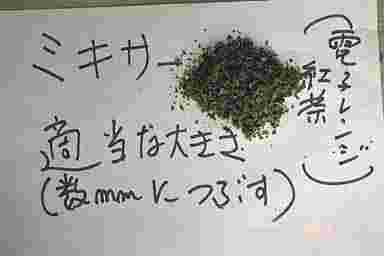 ミキサー
適当な大きさ
(数mmにつぶす)
(電子レンジ)
紅茶